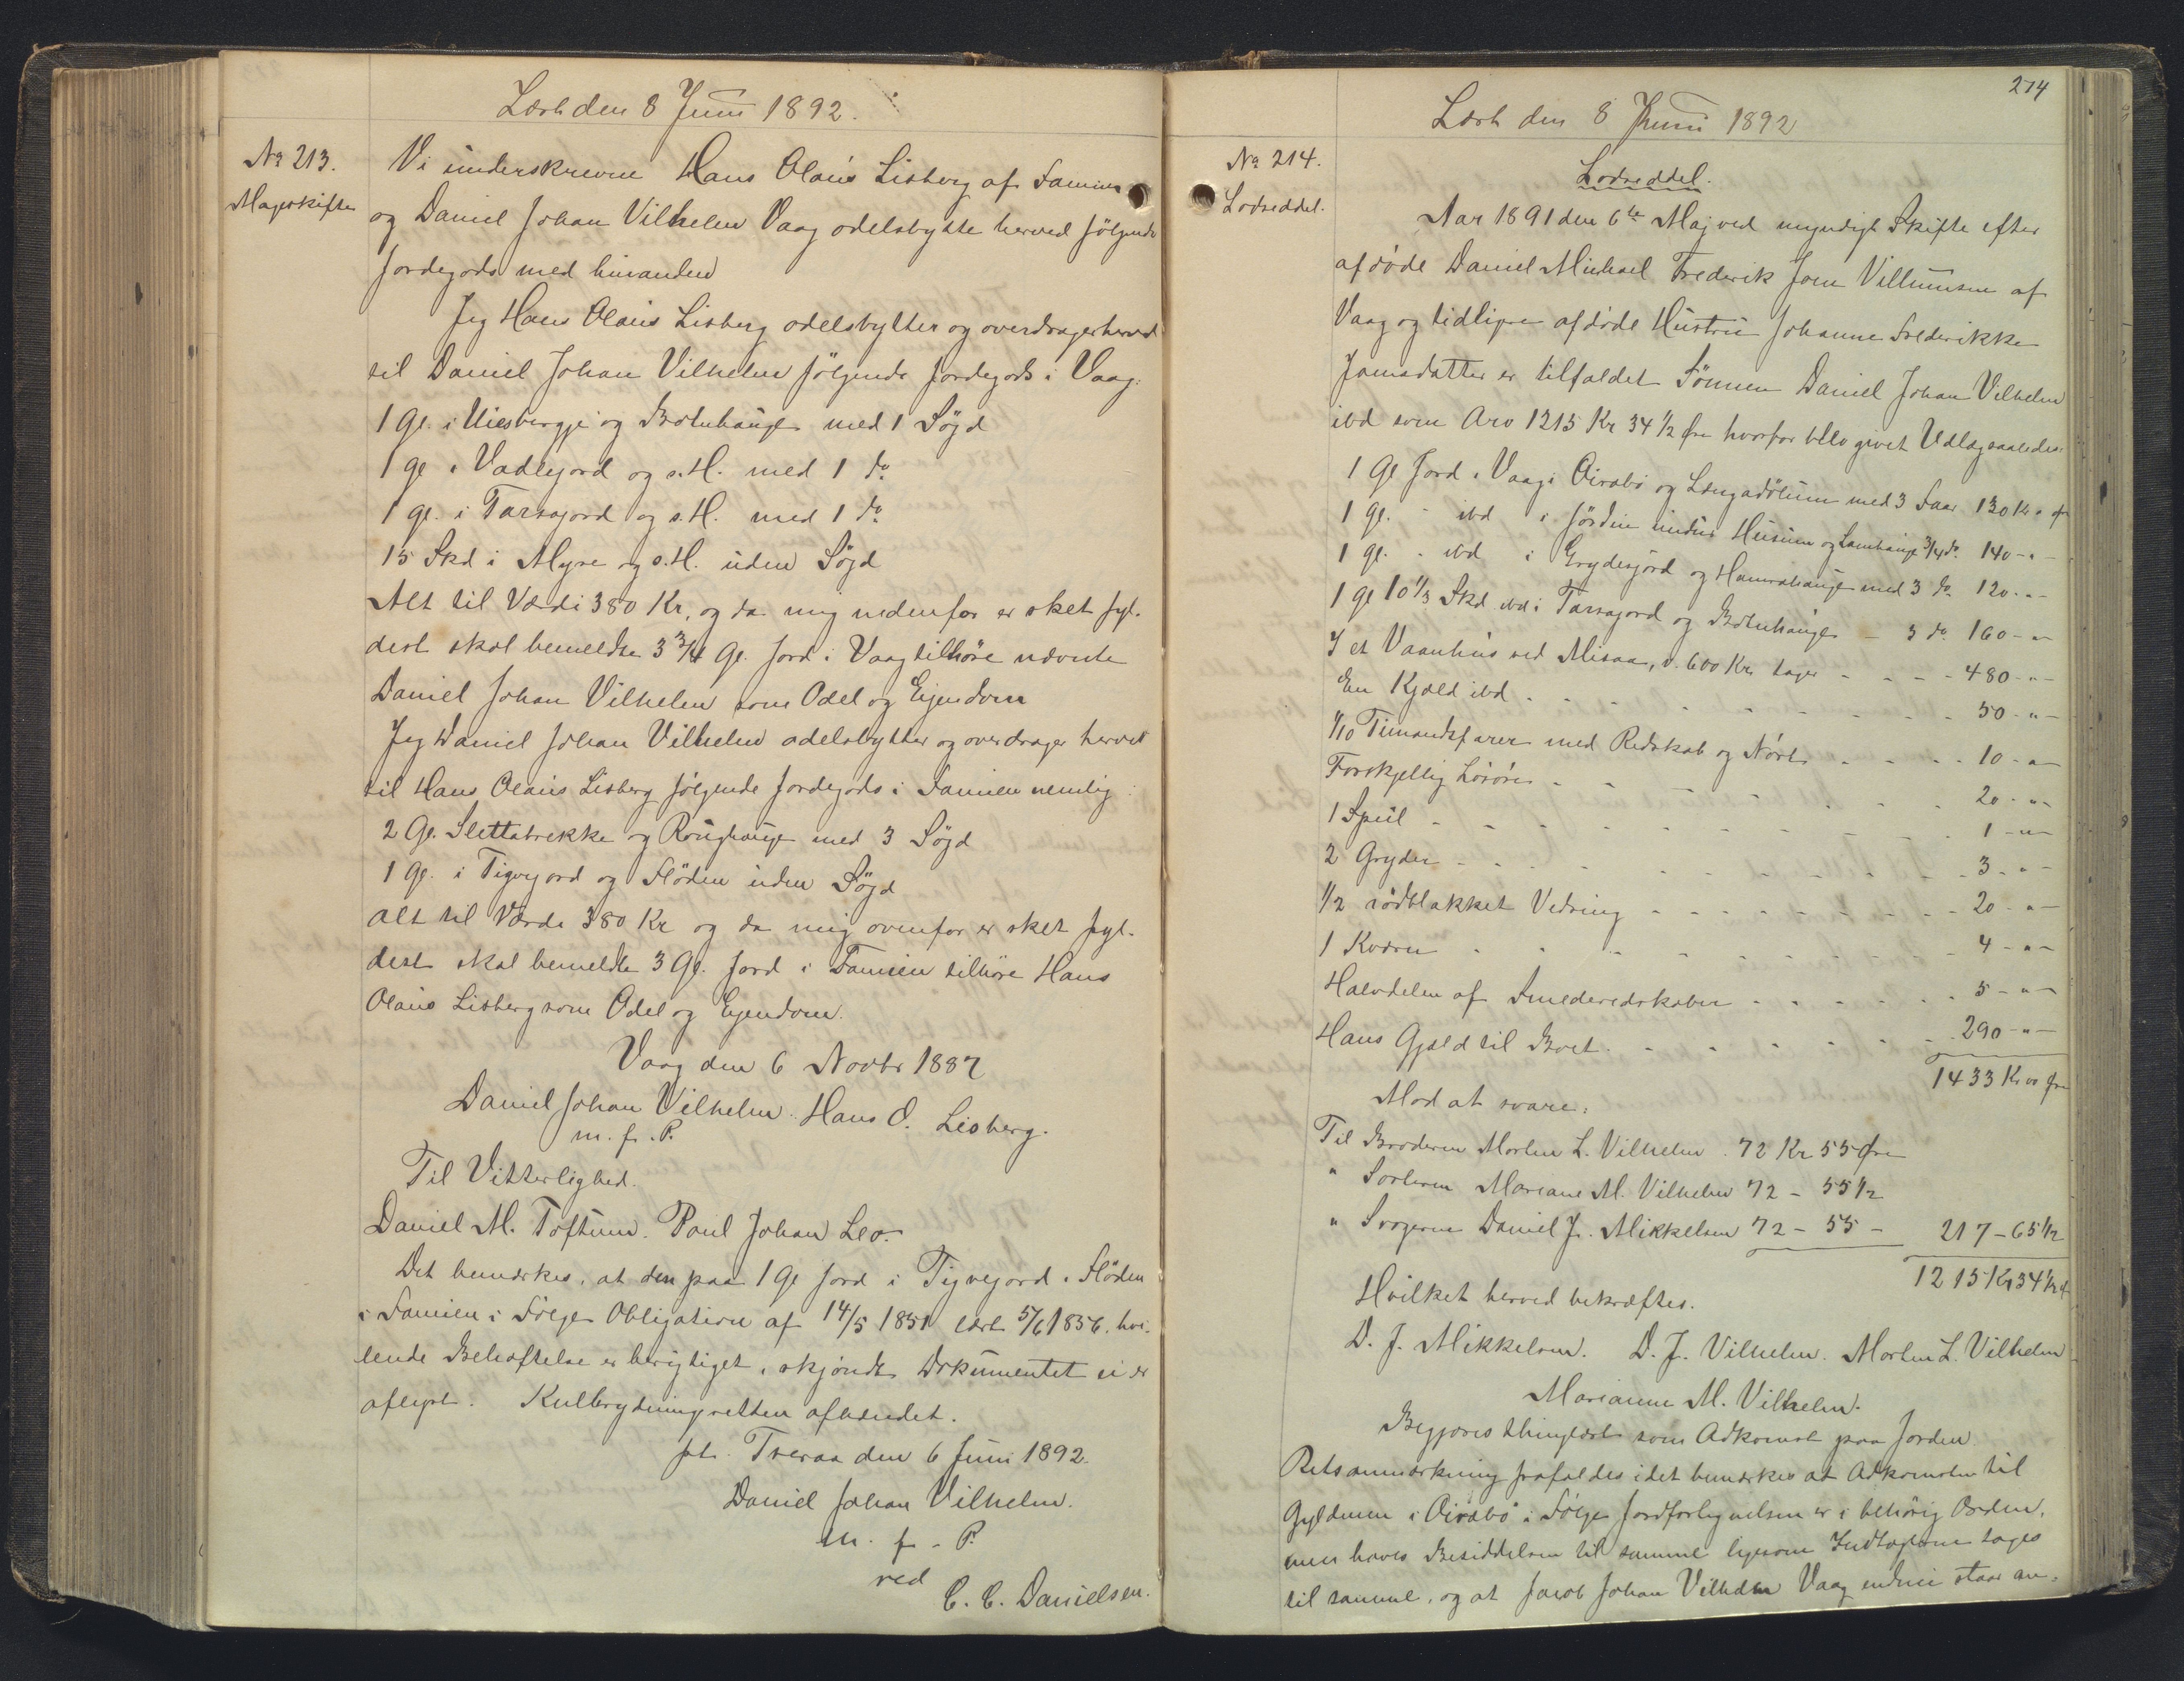 Læst den 8 Juni 1892.
No 213.
Mageskifte
Vi underskrevne Hans Olaus Lisberg af Famien
og Daniel Johan Vilhelm Vaag odelsbytte herved følgende
Jordegods med hinanden
Jeg Hans Olaus Lisberg odelsbytter og overdrager herved
til Daniel Johan Vilhelm følgende Jordegods i Vaag:
1 Gl. i Uiesbergje og Botnhauge med 1 Søjd
1 gl i Vadlegord og s.H. med 1 do
1 gl. i Tarragord og s.H. med 1 do
15 Skd i Myre og s.H. uden Søjd
Alt til Værdi 380 Kr, og da mig nedenfor er sket fyl-
dest skal bemeldte 3 3/4 Gl. Jord i Vaag tilhøre nævnte
Daniel Johan Vilhelm som Odel og Ejendom
Jeg Daniel Johan Vilhelm odelsbytter og overdrager herved
til Hans Olaus Lisberg følgende Jordegods i Famien nemlig:
2 Gl. Slettatrekke og Roughauge med 3 Søjd
1 gl. i Tigvegord og Fløden uden Søjd
alt til Værdi 380 Kr og da mig ovenfor er sket fyl-
dest skal bemeldte 3 Gl. Jord i Famien tilhøre Hans
Olaus Lisberg som Odel og Ejendom.
Vaag den 6 Novbr 1887
Daniel Johan Vilhelm. Hans O. Lisberg.
m. f. P.
Til Vitterlighed.
Daniel M. Toftum. Poul Johan Leo.
Det bemærkes, at den paa 1 Gl Jord i Tigvegord i Fløden
i Famien i Følge Obligation af 14/5 1851 læst 5/6 1856. hvi-
lende Behæftelse er berigtiget, skjøndt Dokumentet ei er
aflyst. Kulbrydningsretten afhændet.
pt. Tveraa den 6 Juni 1892.
Daniel Johan Vilhelm.
m. f. P.
ved
C. C. Danielsen.
274
Læst den 8 Juni 1892
No 214.
Lodseddel.
Lodseddel.
Aar 1891 den 6te Maj ved myndigt Skifte efter
afdøde Daniel Michael Frederik Joen Villumsen af
Vaag og tidligere afdøde Hustru Johanne Frederikke
Jonasdatter er tilfaldet Sønnen Daniel Johan Vilhelm
ibd som Arv 1215 Kr 34 1/2 Øre hvorfor blev givet Udlæg saaledes:
1 Gl Jord i Vaag i Oirabø og Længadølum med 3 Faar 130 Kr " Ør
1 gl. - ibd i Jørdin undir Husum og Lambhauge 3/4 do 140 - " -
1 gl. - ibd i Grydesgord og Hamrahauge med 3 do 120 - " -
1 gl 10 1/3 Skd ibd i Tarragord og Botnhauge - 3 do 160 - " -
I et Vaanhus ved Misaa, v. 600 Kr tages - - - - 480 - " -
En Kjæld ibd - - - 50 - " -
1/10 Timandsfarer med Redskab og Nøst - - - 10 - " -
Forskjellig Løsøre - - - 20 - " -
1 Spul - - - 1 - " -
2 Gryder - - - 3 - " -
1/2 rødblakket Vedring - - - 20 - " -
1 Kværn - - - 4 - " -
Halvdelen af Smederedskaber - - - 5 - " -
Hans Gjæld til Boet - - - 290 - " -
1433 Kr 00 Øre
Mod at svare:
Til Broderen Morten L. Vilhelm . 72 Kr 55 Øre
" Søsteren Mariane M. Vilhelm 72 - 55 1/2
" Svogeren Daniel J. Mikkelsen 72 - 55 - 217 - 65 1/2
1215 Kr 34 1/2 Ø
Hvilket herved bekræftes.
D. J. Mikkelsen. D. J. Vilhelm. Morten L. Vilhelm
Marianne M. Vilhelm.
Begjæres thinglæst som Adkomst paa Jorden.
Retsanmærkning frafaldes idet bemærkes at Adkomsten til
Gyldenen i Oirabø i Følge Jordforlignelsen er i behørig Orden,
men haves Besiddelsen til samme ligesom Indtægterne tages
til samme, og at Jacob Johan Vilhelm Vaag endnu staar an-